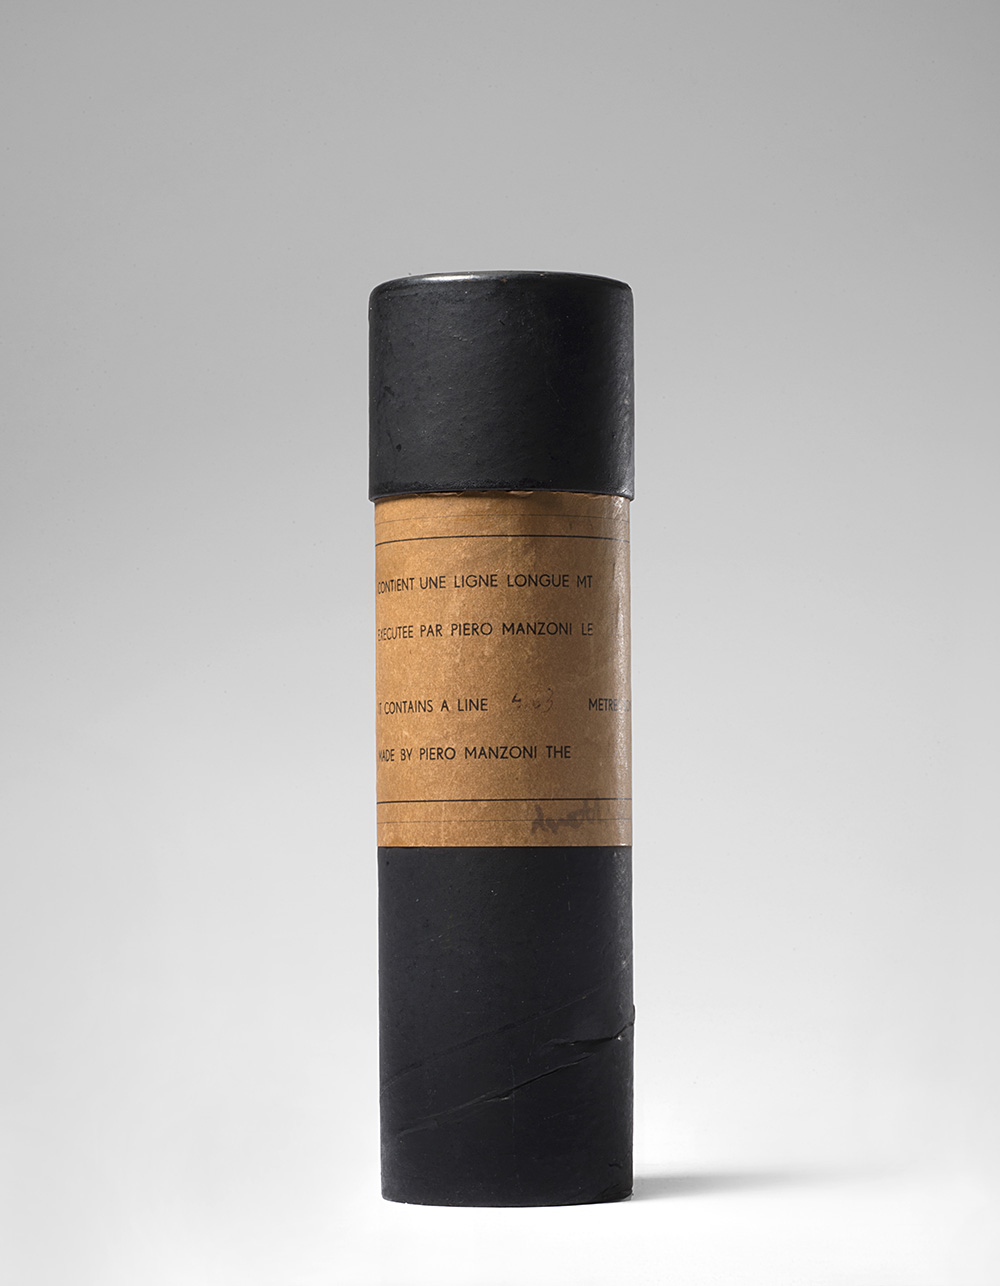 CONTIENT UNE LIGNE LONGUE MT
EXECUTEE PAR PIERO MANZONI LE
IT CONTAINS A LINE METRE
MADE BY PIERO MANZONI THE